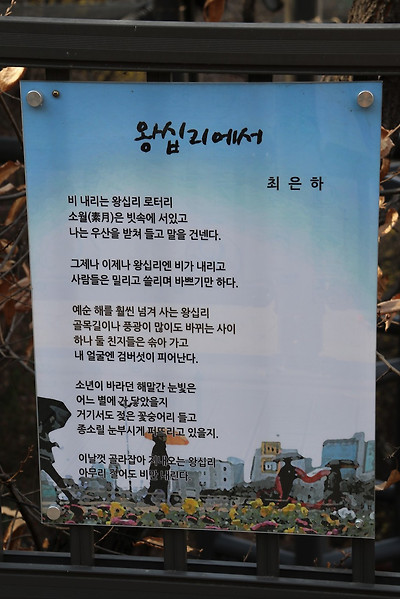 왕십리에서
최은하
비 내리는 왕십리 로터리
소월(素月)은 빗속에 서있고
나는 우산을 받쳐 들고 말을 건넨다.
그제나 이제나 왕십리엔 비가 내리고
사람들은 밀리고 쓸리며 바쁘기만 하다.
예순 해를 훨씬 넘겨 사는 왕십리
골목길이나 풍광이 많이도 바뀌는 사이
하나 둘 친지들은 솎아 가고
내 얼굴엔 검버섯이 피어난다.
소년이 바라던 해맑간 눈빛은
어느 별에 가 닿았을지
거기서도 젖은 꽃숭어리 들고
종소릴 눈부시게 퍼뜨리고 있을지.
이날껏 골라잡아 지내오는 왕십리
아무리 걸어도 비만 내린다